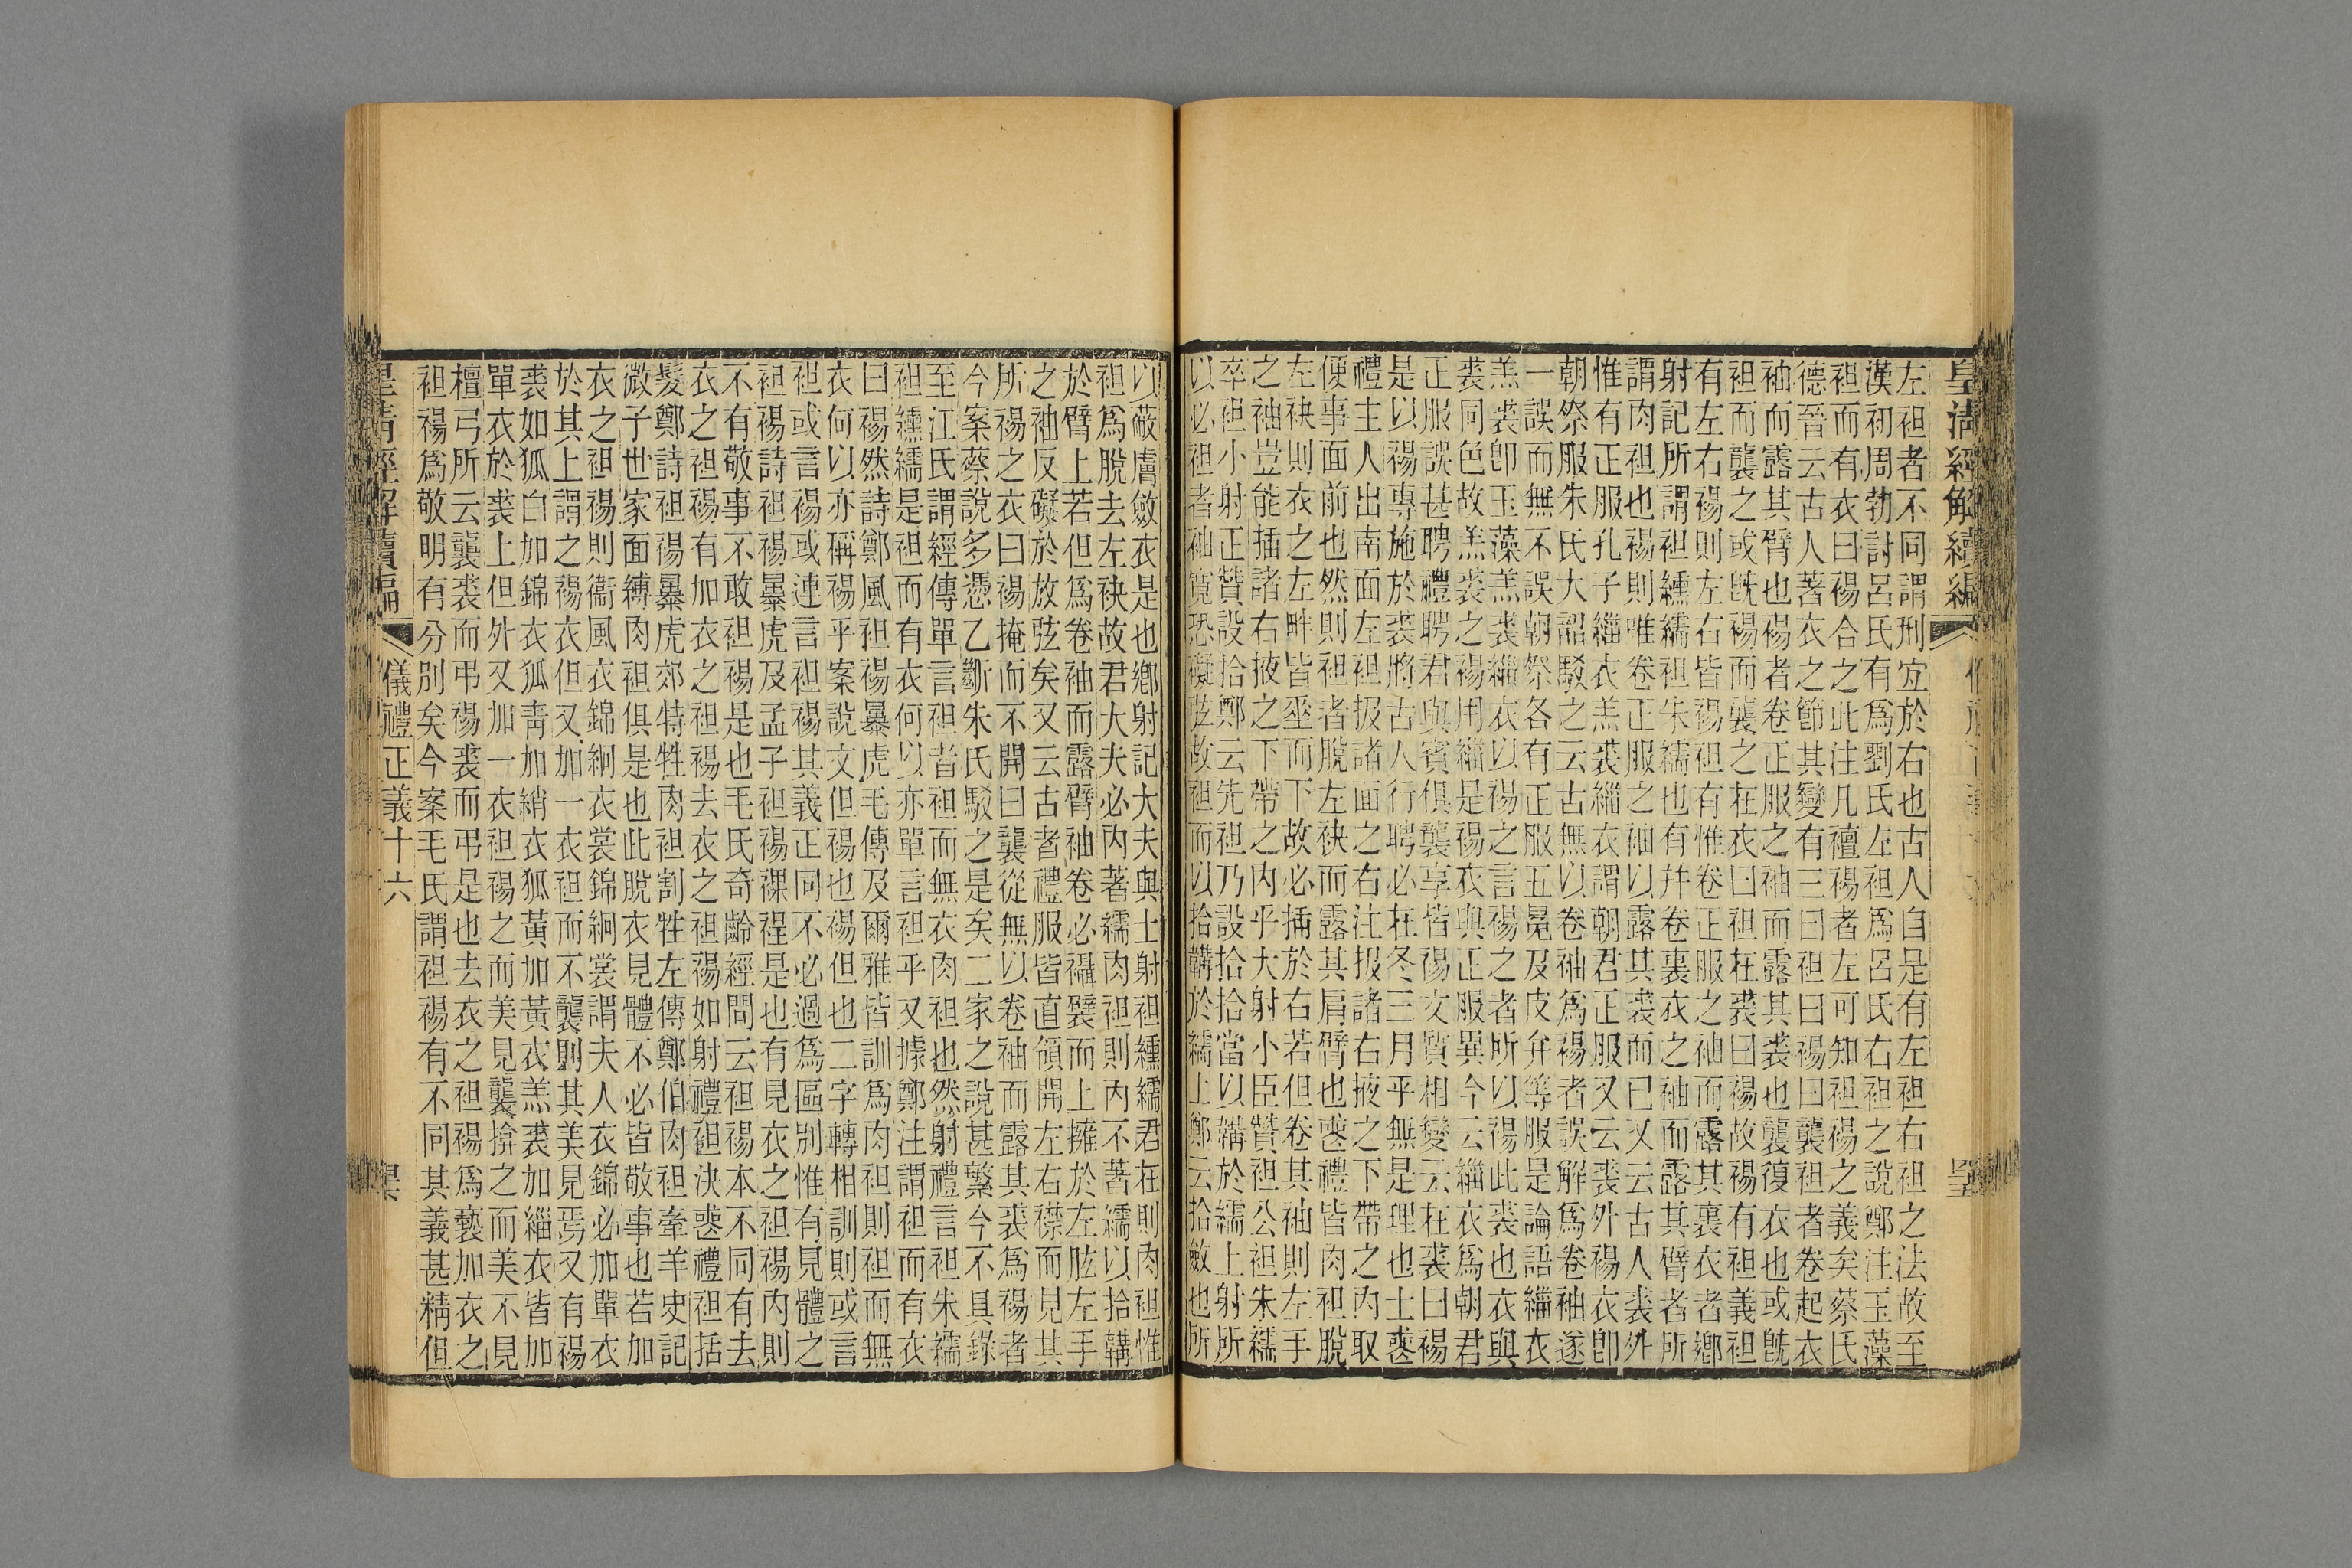 皇清經解續編
左袒者不同謂刑宐於右也古人自是有左袒右袒之法故至
漢初周勃討呂氏有爲劉氏左袒爲呂氏右袒之說鄭注玉藻
袒而有衣曰裼合之此注凡襢裼者左可知袒裼之義矣蔡氏
德晉云古人著衣之節其變有三曰袒曰裼曰襲袒者卷起衣
袖而露其臂也裼者卷正服之袖而露其裘也襲復衣也或旣
袒而襲之或旣裼而襲之在衣曰袒在裘曰裼故裼有袒義袒
有左右裼則左右皆裼袒有惟卷正服之袖而露其裏衣者鄉
射記所謂袒纁襦袒朱襦也有幷卷裏衣之袖而露其臂者所
謂肉袒也裼則唯卷正服之袖以露其裘而已又云古人裘外
惟有正服孔子緇衣羔裘緇衣謂朝君正服又云裘外裼衣卽
朝祭服朱氏大韶駁之云古無以卷袖爲裼者誤解爲卷袖遂
一誤而無不誤朝祭各有正服五冕及皮弁等服是論語緇衣
羔裘卽玉藻羔裘緇衣以裼之言裼之者所以裼此裘也衣與
裘同色故羔裘之裼用緇是裼衣與正服異今云緇衣爲朝君
正服誤甚聘禮聘君與賓俱襲享皆裼文質相變云在裘曰裼
是以裼專施於裘將古人行聘必在冬三月乎無是理也士喪
禮主人出南面左袒扱諸面之右注扱諸右掖之下帶之內取
便事面前也然則袒者脫左袂而露其肩臂也喪禮皆肉袒脫
左袂則衣之左畔皆坐而下故必插於右若但卷其袖則左手
之袖豈能插諸右掖之下帶之內乎大射小臣贊袒公袒朱襦
卒袒小射正贊設拾鄭云先袒乃設拾拾當以韝於襦上射所
以必袒者袖寬恐礙弦故袒而以拾韝於襦上鄭云拾斂也所
以蔽膚斂衣是也鄉射記大夫與士射袒纁襦君在則肉袒惟
袒爲脫去左袂故君大夫必內著襦肉袒則內不著襦以拾韝
於臂上若但爲卷袖而露臂袖卷必襵襞而上擁於左肱左手
之袖反礙於放弦矣又云古者禮服皆直領開左右襟而見其
所裼之衣曰裼掩而不開曰襲從無以卷袖而露其裘爲裼者
今案蔡說多憑乙斷朱氏駁之是矣二家之說甚繁今不具錄
至江氏謂經傳單言袒者袒而無衣肉袒也然射禮言袒朱襦
袒纁襦是袒而有衣何以亦單言袒乎又據鄭注謂袒而有衣
曰裼然詩鄭風袒裼暴虎毛傳及爾雅皆訓爲肉袒則袒而無
衣何以亦稱裼乎案說文但裼也裼但也二字轉相訓則或言
袒或言裼或連言袒裼其義正同不必過爲區別惟有見體之
袒裼詩袒裼暴虎及孟子袒裼裸裎是也有見衣之袒裼內則
不有敬事不敢袒裼是也毛氏奇齡經問云袒裼本不同有去
衣之袒裼有加衣之袒裼去衣之袒裼如射禮袒決喪禮袒括
髮鄭詩袒裼暴虎郊特牲肉袒割牲左傳鄭伯肉袒牽羊史記
微子世家面縛肉袒俱是也此脫衣見體不必皆敬事也若加
衣之袒裼則衞風衣錦絅衣裳錦絅裳謂夫人衣錦必加單衣
於其上謂之裼衣但又加一衣袒而不襲則其美見焉又有裼
裘如狐白加錦衣狐靑加綃衣狐黃加黃衣羔裘加緇衣皆加
單衣於裘上但外又加一衣袒裼之而美見襲揜之而美不見
檀弓所云襲裘而弔裼裘而弔是也去衣之袒裼爲褻加衣之
袒裼爲敬明有分別矣今案毛氏謂袒裼有不同其義甚精但
儀禮正義十六